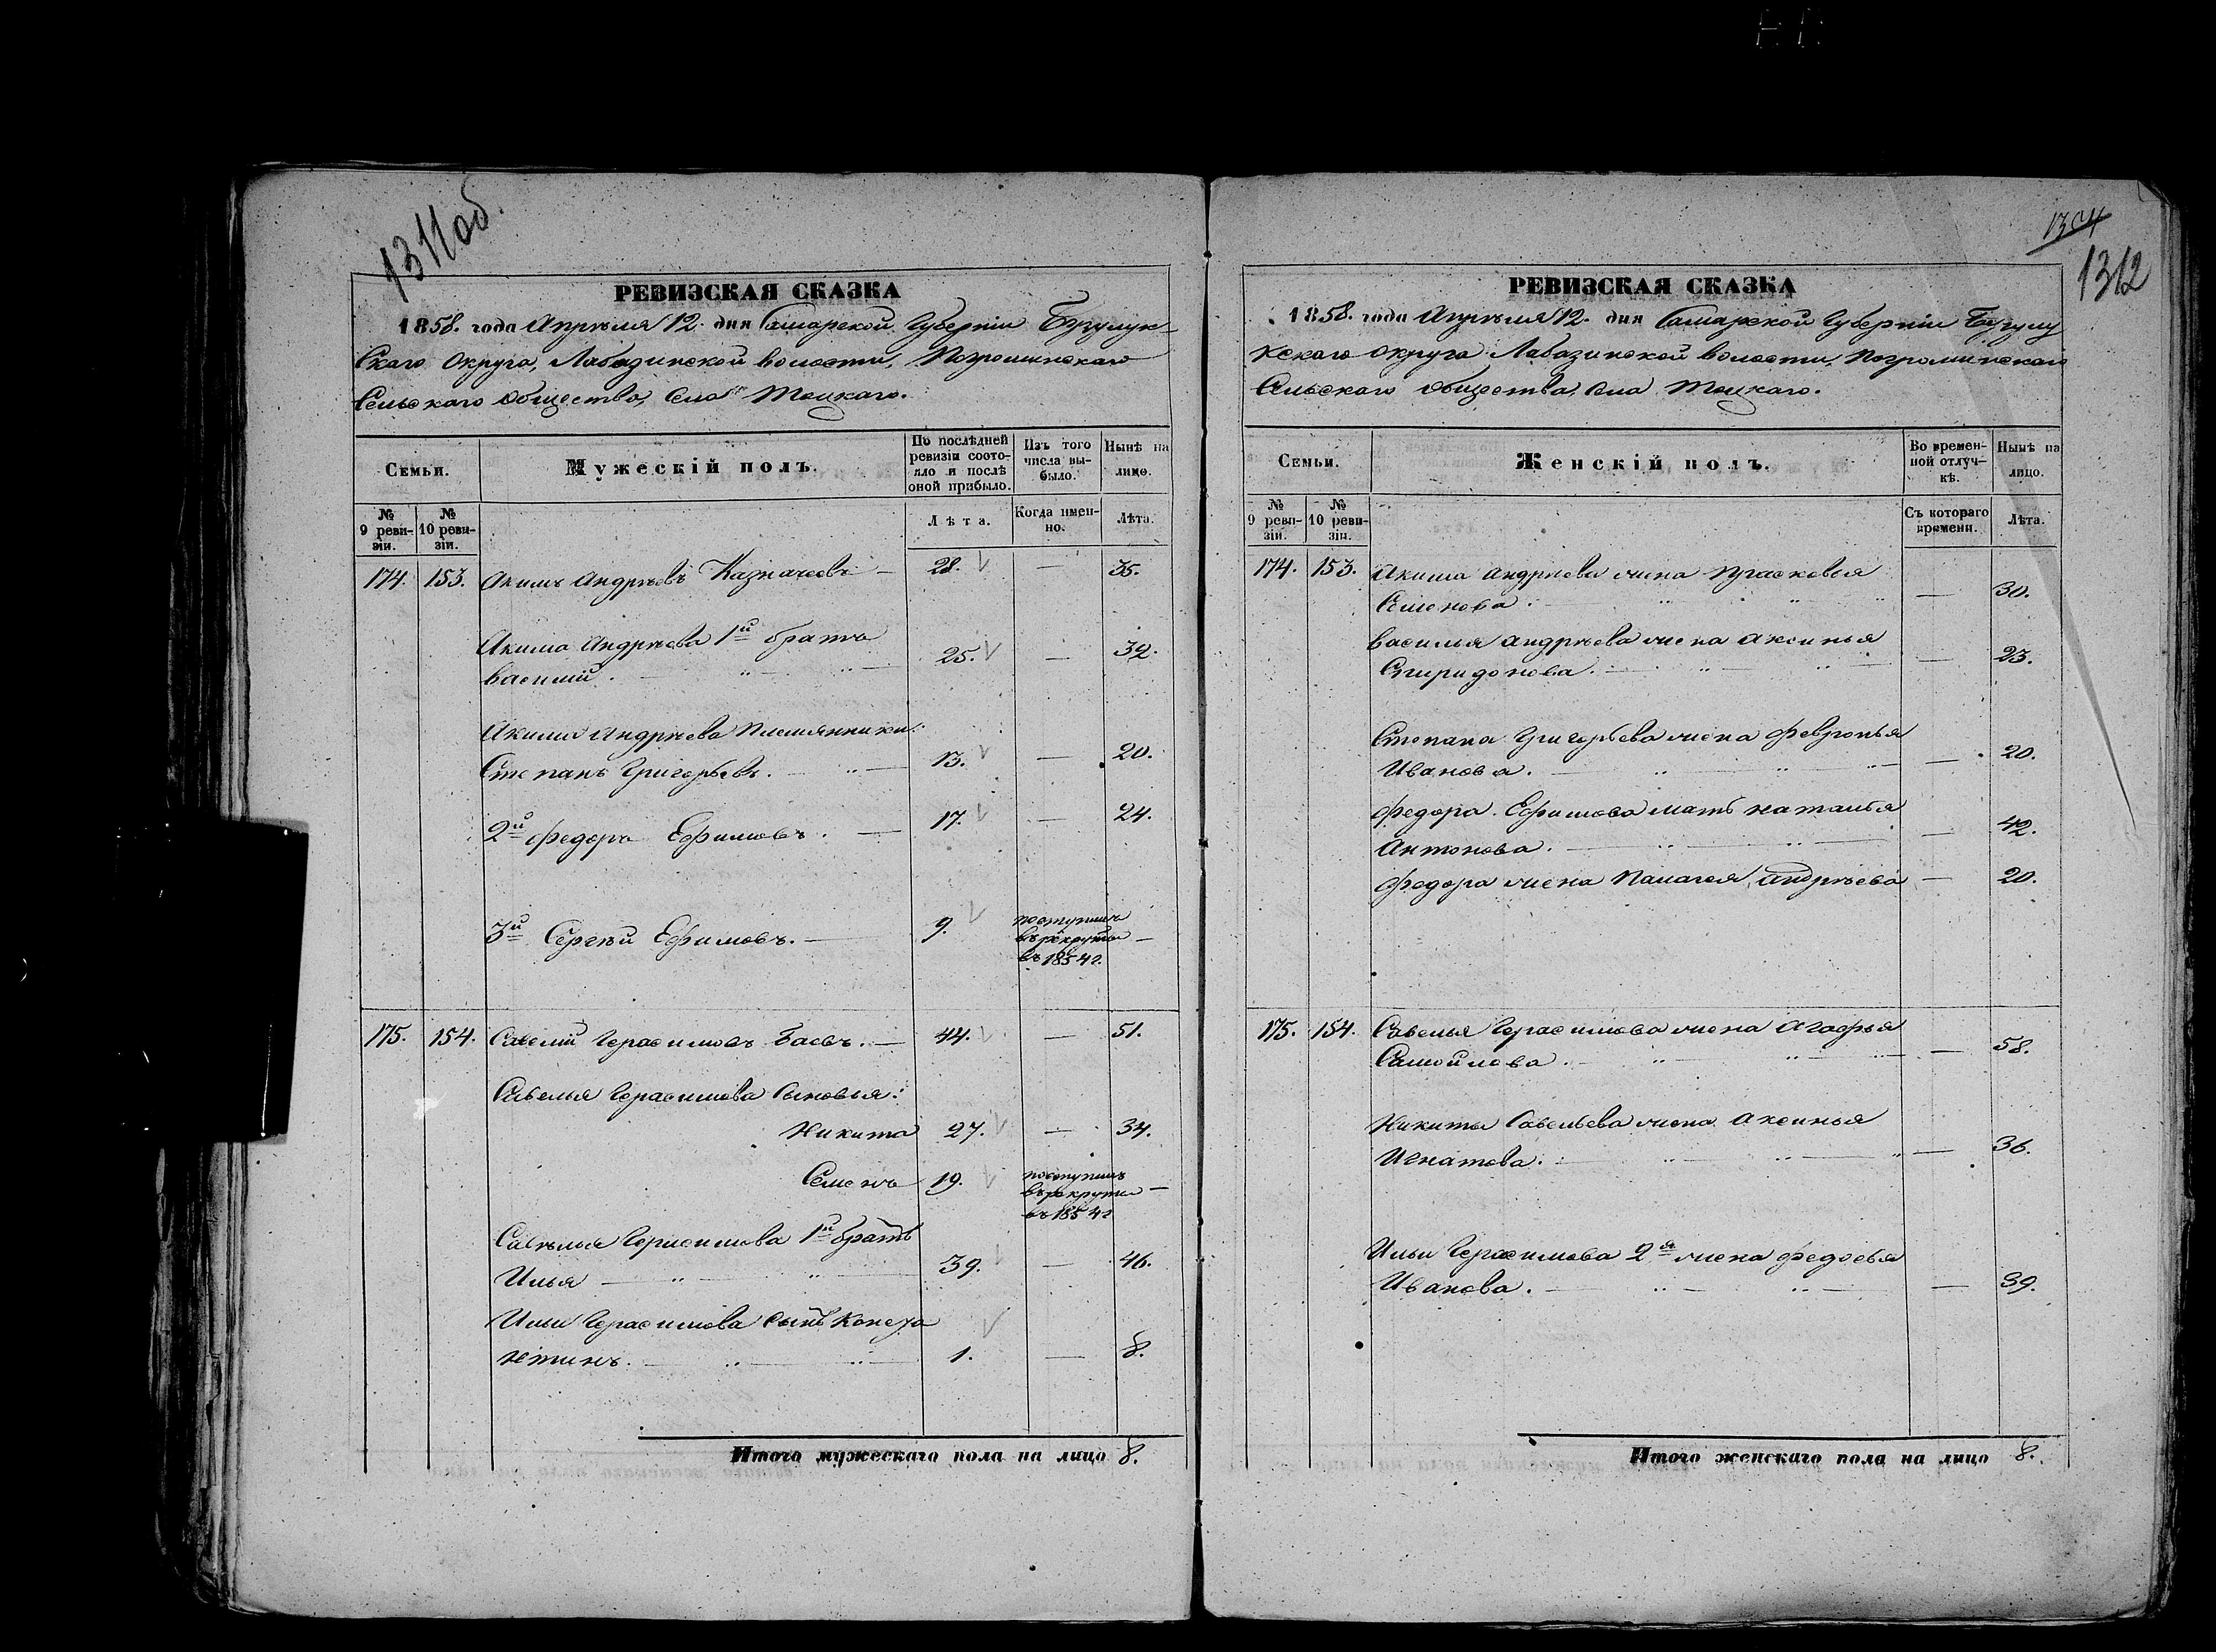 1311об.
РЕВИЗСКАЯ СКАЗКА
1858. года Апрѣля 12. дня Самарской Губерніи Бузулук-
скаго Округа, Лабазинской волости, Погроминскаго
Сельскаго Общества, Села Тоцкаго.
Семьи.
Мужескій полъ.
По послѣдней ревизіи состояло и послѣ оной прибыло.
Изъ того числа выбыло.
Нынѣ на лицо.
№ 9 ревизіи.
№ 10 ревизіи.
Лѣта.
Когда именно.
Лѣта.
174. 153. Акимъ Андрѣевъ Казначеевъ — 28. — 35.
Акима Андрѣева 1й братъ
Василий. 25. — 32.
Акима Андрѣева Племянники:
Степанъ Григорьевъ. 13. — 20.
2й Федоръ Ефимовъ. — 17. — 24.
3й Сергѣй Ефимовъ. — 9. поступилъ
въ рекруты —
въ 1854 г.
175. 154. Савелий Герасимовъ Баевъ. — 44. — 51.
Савелья Герасимова Сыновья:
Никита 27. — 34.
Семенъ 19. поступилъ
въ рекруты —
въ 1854 г
Савѣлья Герасимова 1й братъ
Илья 39. — 46.
Ильи Герасимова сынъ Конста
нтинъ. 1. — 8.
Итого мужескаго пола на лицо 8.
1304
1312
РЕВИЗСКАЯ СКАЗКА
1858. года Апрѣля 12. дня Самарской Губерніи Бузулу
кскаго округа Лабазинской волости, Погроминскаго
Сельскаго общества, села Тоцкаго.
Семьи.
Женскій полъ.
Во временной отлучкѣ.
Нынѣ на лицо.
№ 9 ревизіи.
№ 10 ревизіи.
Съ котораго времени.
Лѣта.
174. 153. Акима Андрѣева жена Прасковья
Семенова. — 30.
Василья Андрѣева жена Аксинья
Спиридонова. — 23.
Степана Григорьева жена Февронья
Иванова. — 20.
Федора Ефимова мать Наталья
Антонова. — 42.
Федора жена Палагея Андрѣева — 20.
175. 154. Савелья Герасимова жена Агафья
Самойлова. — 58.
Никиты Савельева жена Аксинья
Игнатова. — 36.
Ильи Герасимова 2я жена Федосья
Иванова. — 39.
Итого женскаго пола на лицо 8.